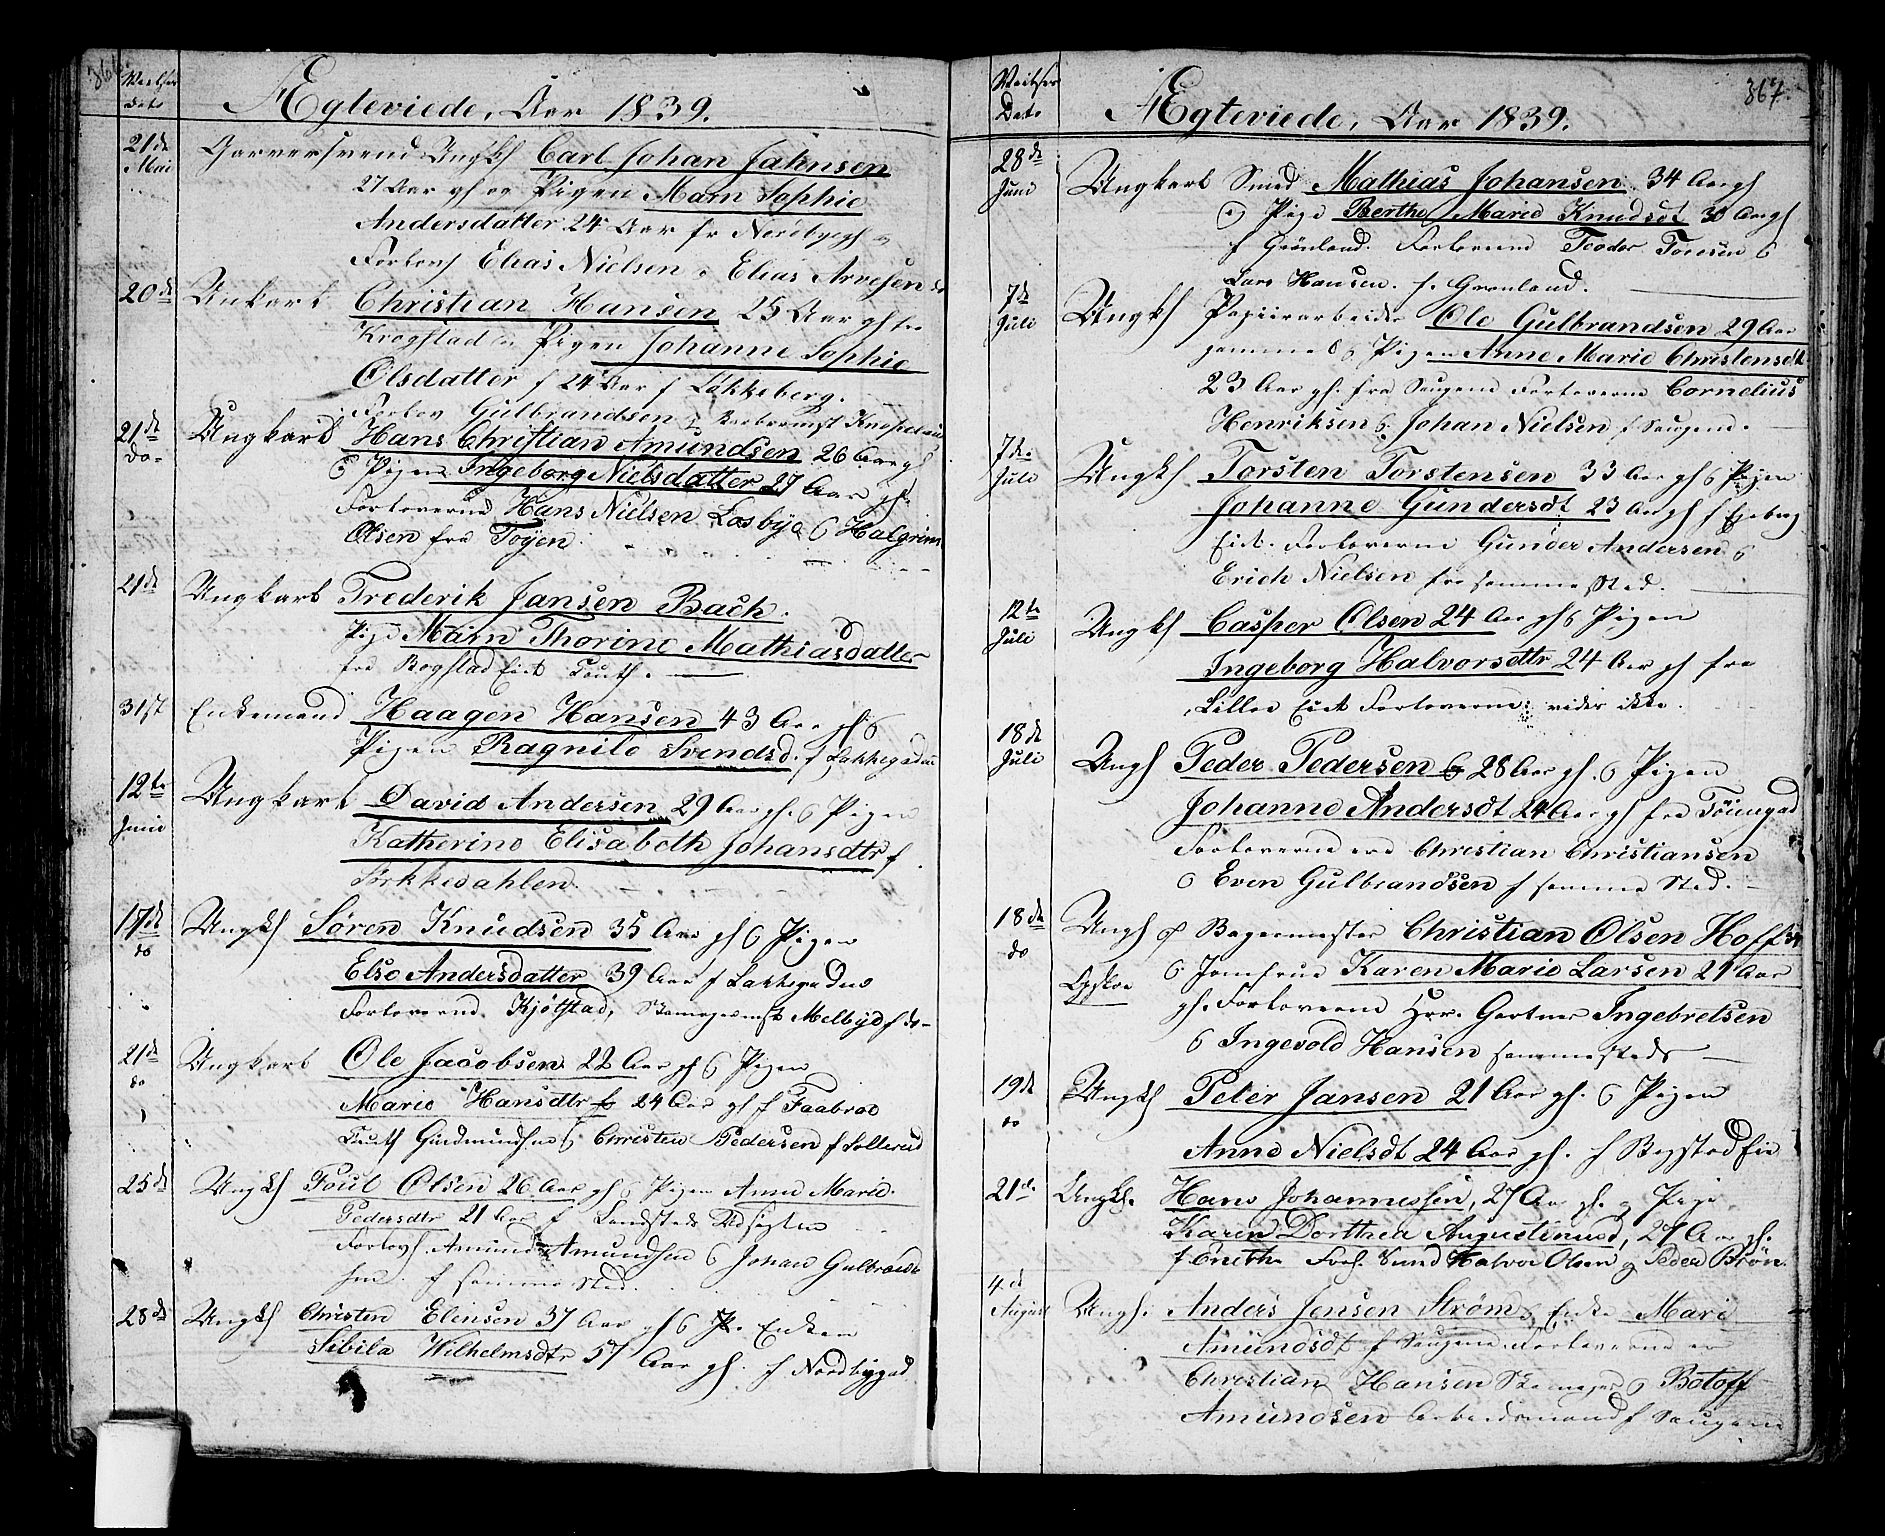 366
Vielser
Dato
Ægteviede, Aar 1839.
21de Mai
Garversvend Ungk Carl Johan Jahnsen
27 Aar gl og Pigen Marn Sophie
Andersdatter 24 Aar fr Nordbygd
Forlov Elias Nielsen Elias Arvesen
20de
Unkarl Christian Hansen 25 Aar gl fra
Krogstad Pigen Johanne Sophie
Olsdatter f 24 Aar f Løkkeberg.
Forlov Gulbrandsen
21de do
Ungkarl Hans Christian Amundsen 26 Aar gl
6 Pigen Ingeborg Nielsdatter 27 Aar gl
Forloverne Hans Nielsen Losbye 6 Halgrim
Olsen fra Tøyen.
21de
Ungkarl Frederik Jansen Bach.
Pige Marn Thorine Mathiasdatter
fra Bogstad Eiet
31st
Enkemand Haagen Hansen 43 Aar gl 6
Pigen Ragnild Svendsd. f Lakkegaden
12te Juni
Ungkarl David Andersen 29 Aar gl. 6 Pigen
Katherine Elisabeth Johansdtr f
Sørkkedahlen
17de do
Ungk Søren Knudsen 35 Aar gl 6 Pigen
Else Andersdatter 39 Aar f Lakkegaden
Forloverne. Kjølstad, Melbye f do
21de do
Ungkarl Ole Jacobsen 22 Aar gl 6 Pigen
Marie Hansdtr 24 Aar gl f Faabroe
Gudmundsen 6 Christen Pedersen f Sollerud
25de
Ungk Poul Olsen 26 Aar gl 6 Pigen Anne Marie
Pedersdtr 21 Aar f
Forlov Amund Amundsen 6 Johan Gulbrand
sen. f samme Sted.
28de
Ungk Christen Elensen 37 Aar gl 6 P. Enken
Sibila Wilhelmsdtr 57 Aar gl. f Nordbygad
367.
Vielser
Dato
Ægteviede, Aar 1839.
28de Juni
Ungkarl Smed Mathias Johansen 34 Aar gl
Pige Berthe Marie Knudsdt 30 Aar gl
f Grønland. Forloverne Teodor Toresen 6
Lars Hansen. f. Grønland.
7de Juli
Ungk Papiirarbeider Ole Gulbrandsen 29 Aar
gammel 6 Pigen Anne Marie Christensdt
23 Aar gl. fra Saugene Forloverne Cornelius
Henriksen 6 Johan Nielsen f Saugene.
7de Juli
Ungk Torsten Torstensen 33 Aar gl 6 Pigen
Johanne Gundersdt 23 Aar gl f Egeberg
Eiet. Forloverne Gunder Andersen 6
Erich Nielsen fra samme Sted.
12te Juli
Ungk Casper Olsen 24 Aar gl 6 Pigen
Ingeborg Halvorsdttr 24 Aar gl fra
Lilloe Eiet Forloverne vides ikke.
18de Juli
Ungk Peder Pedersen 28 Aar gl. 6 Pigen
Johanne Andersdt 24 Aar gl fra Tøiengad
Forloverne ere Christian Christiansen
6 Even Gulbrandsen f samme Sted.
18de do
Ungk Bagermester Christian Olsen Hoff
6 Jomfrue Karen Marie Larsen 21 Aar
gl. Forloverne Herr. Gartner Ingebretsen
6 Ingevold Hansen sammesteds
19de do
Ungk Peter Jansen 21 Aar gl. 6 Pigen
Anne Nielsdt 24 Aar gl. f Bogstad Eie
21de
Ungk. Hans Johannessen, 27 Aar gl. og Pige
Karen Dorthea Augustinusd, 27 Aar gl.
f Forl. Smed Halvor Olsen og Peder Brøn
4de August
Ungk. Anders Jensen Strøm 6 Enke Mari
Amundsdt f Saugene Forloverne er
Christian Hansen Skomager 6 Botoff
Amundsen Arbeidsmand f Saugene